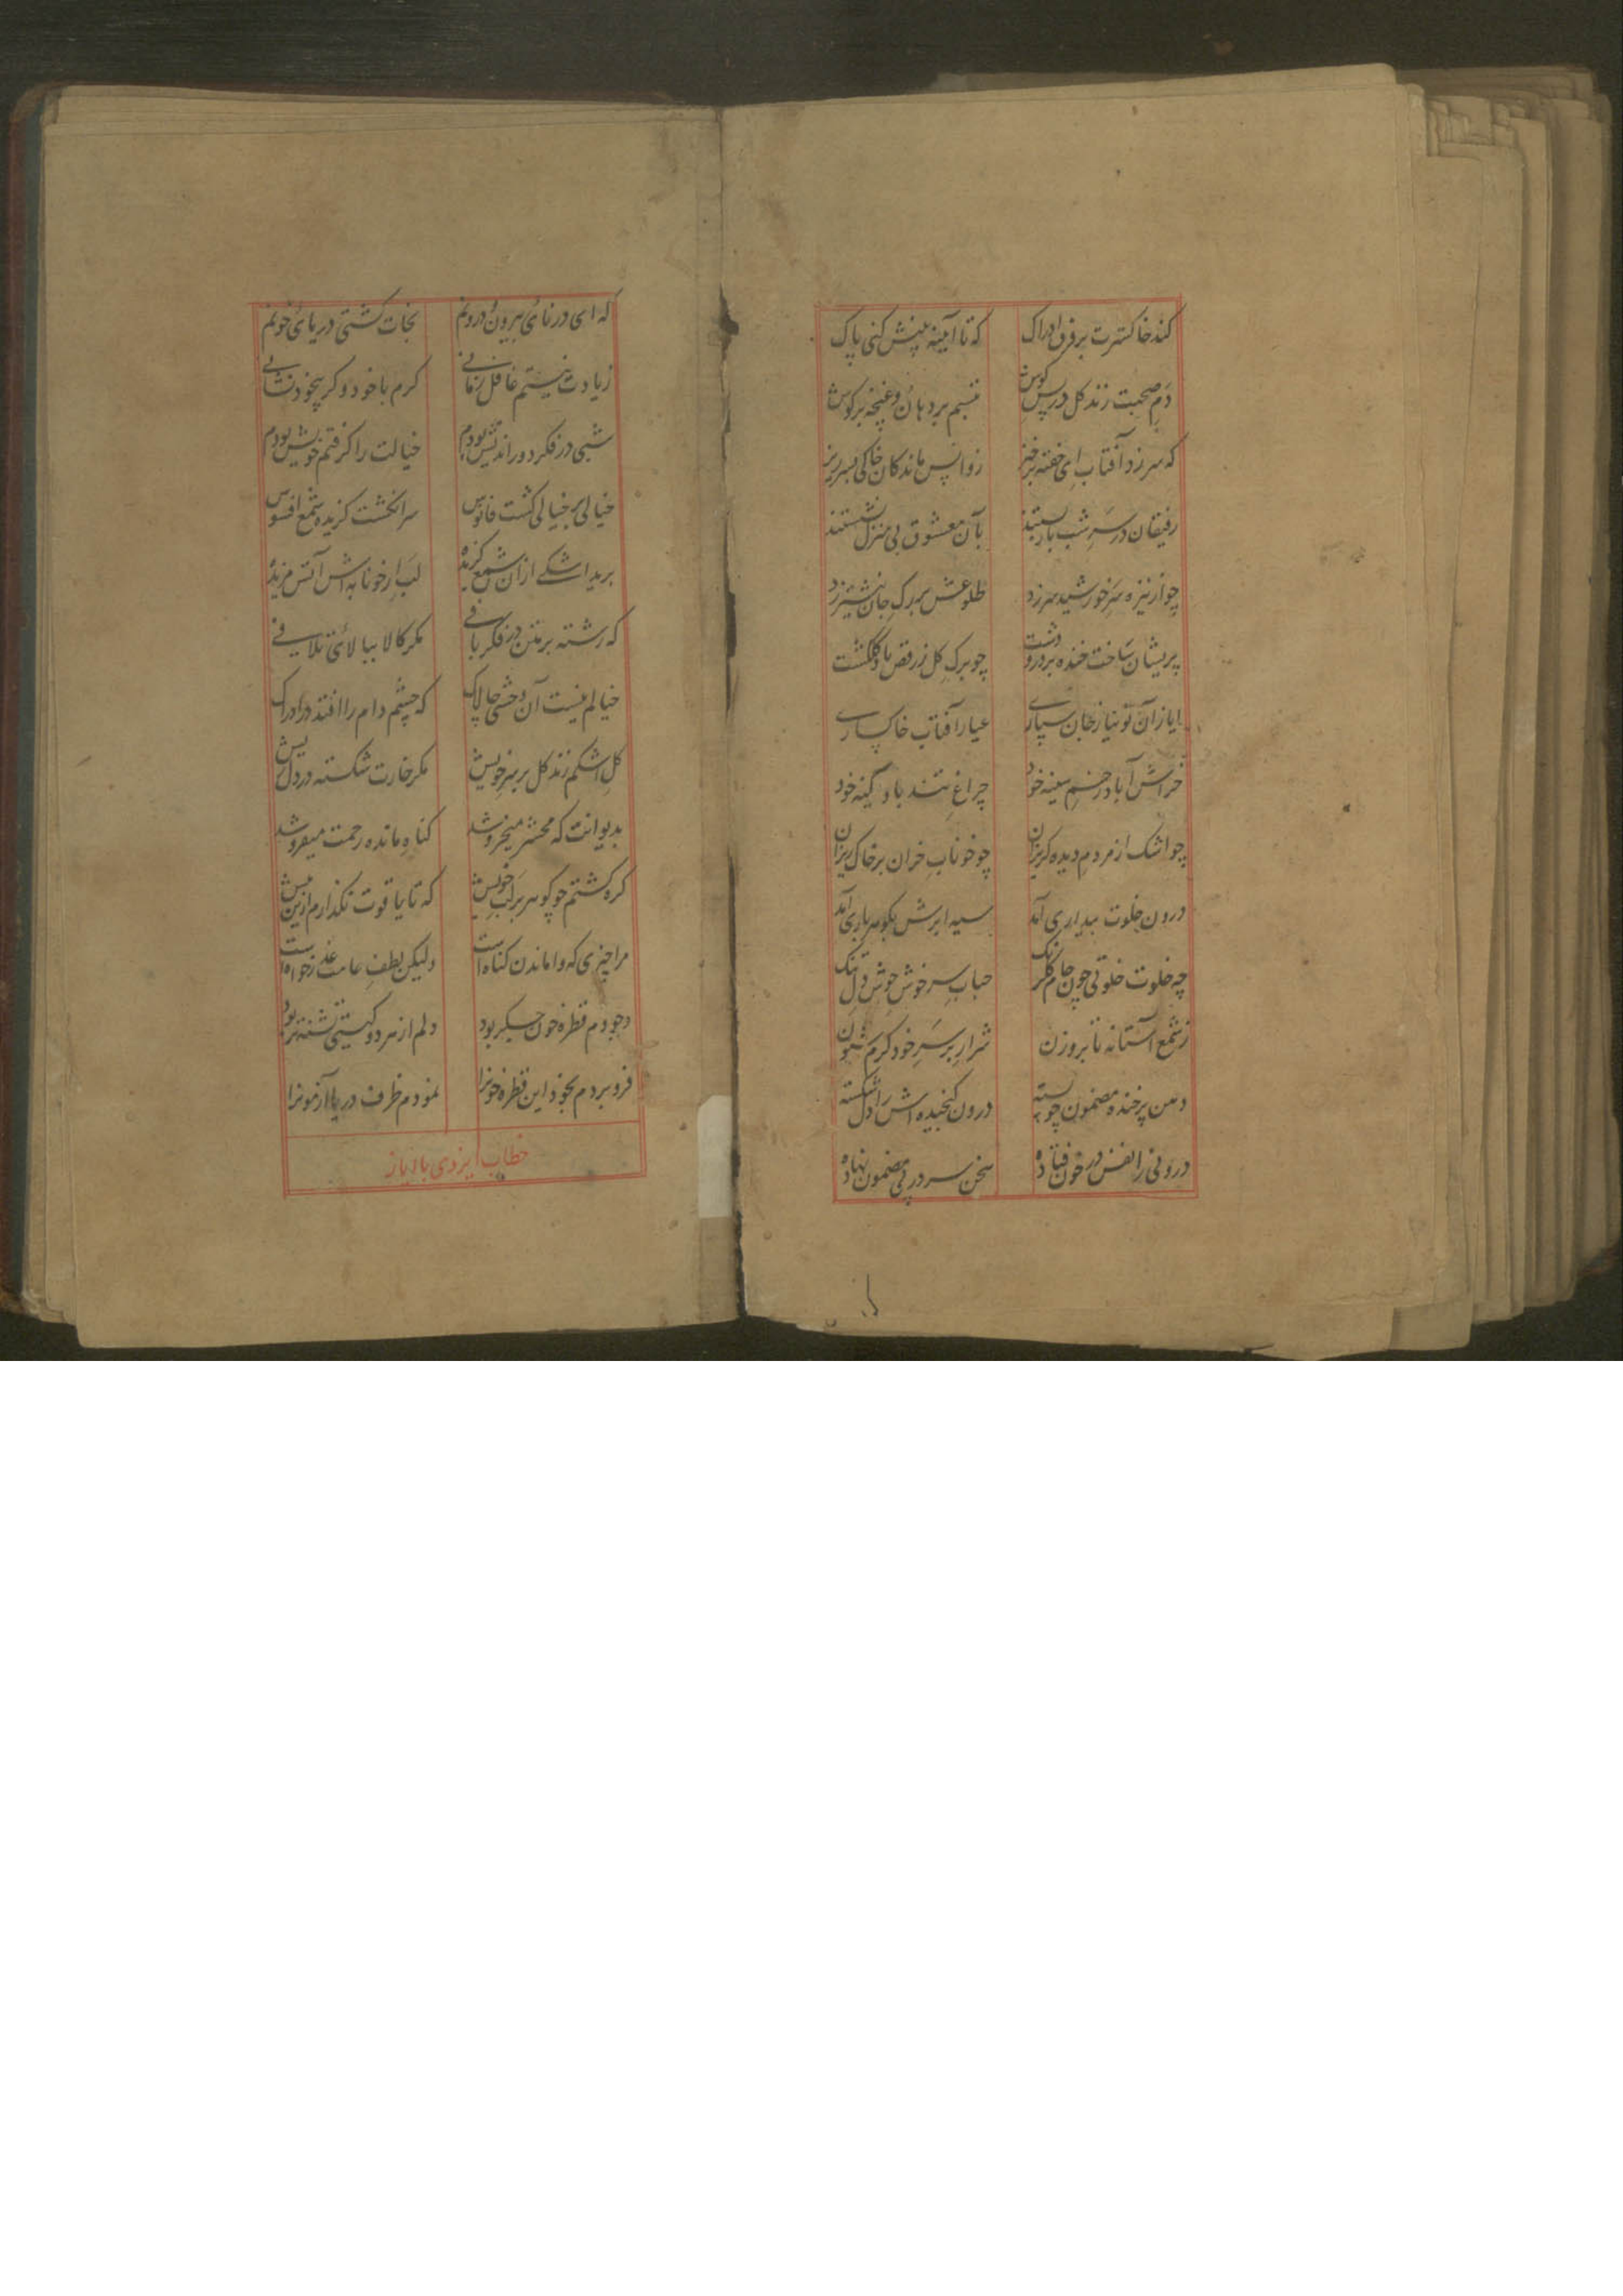 کند خاکسترت بر فرق ادراک که تا آیینه بینش کنی پاک
دم صحبت زند کل در پس کوش تبسم بر دهان و غنچه بر کوش
که سر زد آفتاب ای خفته برخیز ز واپس ماندکان خاکی بسر ریز
رفیقان در سر شب بار بستند بآن معشوق بی منزل نشستند
چو از نیزه سر خورشید سر زد طلوعش بر رک جان نیشتر زد
پریشان ساخت خنده بر در و دشت چو برک کل ز رقص باد کلکشت
ایاز آن نو نیاز جان سپاری عیار آفتاب خاکساری
خراش آباد زخم سینه خود چراغ تند باد کینه خود
چو اشک از مردم دیده کریزان چو خوناب خزان بر خاک ریزان
درون خلوت بیداری آمد سیه ابرش بکوهر باری آمد
چه خلوت خلوتی چون جام کلرنک حباب سرخوش جوش دل تنک
ز شمع آستانه تا بروزن شرار بر سر خود کرم شیون
دهن پر خنده مضمون چو پسته درون کنجیده اش راز دل شکسته
درونی را نفس در خون فتاده سخن سر در پی مضمون نهاده
که ای در نای بیرون درونم نجات کشتی دریای خونم
ز یادت نیستم غافل زمانی کرم با خود و کر بیخود نشانی
شبی در فکر دور اندیش بودم خیالت را کرفتم خویش بودم
خیالی بر خیالی کشت فانوس سر انکشت کزیده شمع افسوس
برید اشکی از آن شمع کزیده لب از خونابه اش آتش مزیده
که رشته بر متن در فکر بافی مکر کالا بیالائی تلافی
خیالم نیست آن وحشی چالاک که چشم دام را افتد در ادراک
کل اشکم زند کل بر سر خویش مکر خارت شکسته در دل ریش
بدیوانت که محشر میخروشد کناه مانده رحمت میفروشد
کره کشتم چو کوهر بر لب خویش که تا یاقوت نکذارم ازین بیش
مرا چیزی که واماندن کناه است ولیکن لطف عامت عذر خواه است
وجودم قطره خون جکر بود دلم از هر دو کیتی تشنه تر بود
فرو بردم بخود این قطره خونرا نمودم ظرف دریا آزمونرا
خطاب ایزدی با ایاز